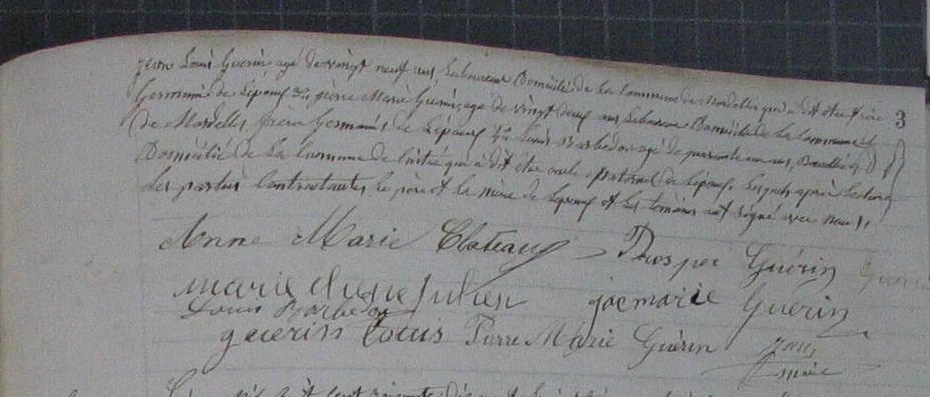 Jean Louis Guérin, agé de vingt neuf ans, Laboureur Domicilié de la Commune de Mordelles qui a dit être frère
3
Germain de l'époux 3o, pierre Marie Guérin, agé de vingt deux ans Laboureur Domicilié de la Commune
de Mordelles, frère Germain de l'époux 4o Louis Barbedor agé de quarante ans,
Domicilié de la Commune de qui a dit être oncle paternel de l'époux. Lesquels après Lecture
Les parties Contractantes, le père et la mère de l'époux et les témoins ont signé avec nous.
Anne Marie Chateau Prosper Guérin
marie Julien joemarie Guerin
Louis Barbedor
guerin Louis Pierre Marie Guérin
maire